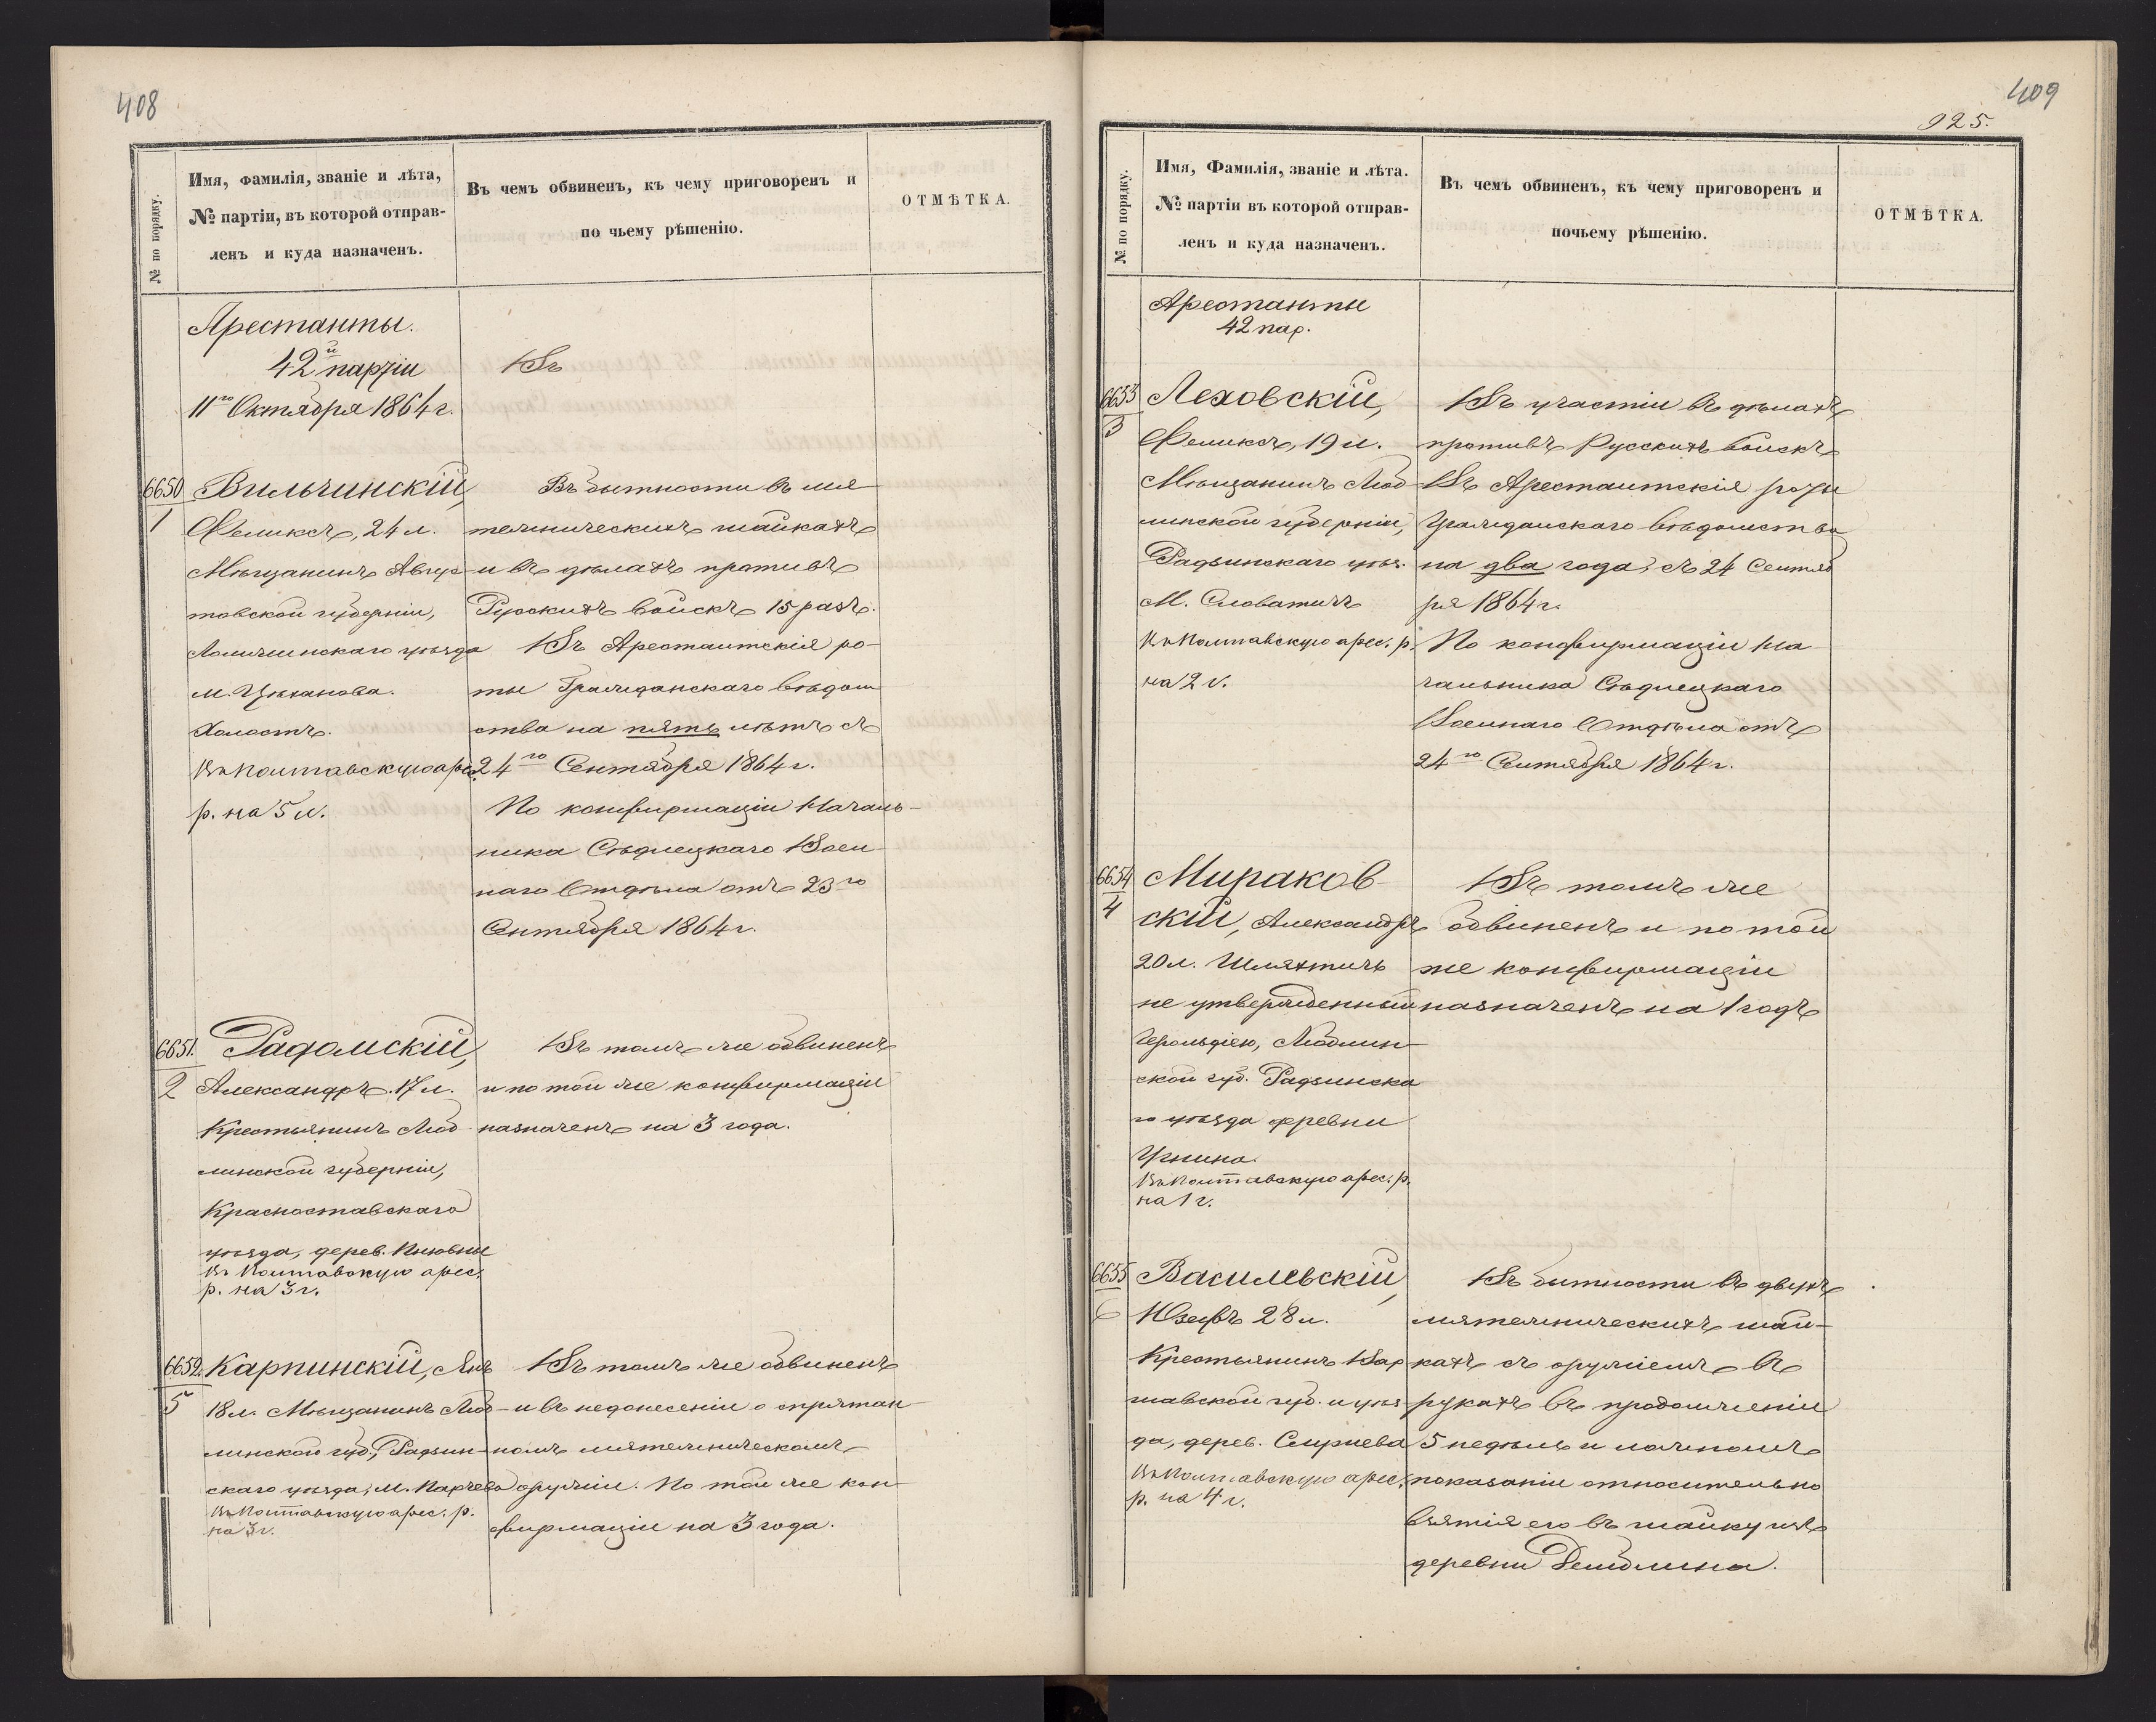 408
№ по порядку.
Имя, фамилія, званіе и лѣта,
№ партіи, въ которой отправ-
ленъ и куда назначенъ.
Въ чемъ обвиненъ, къ чему приговоренъ и
по чьему рѣшенію.
ОТМѢТКА.
Арестанты.
42й партіи
11го Октября 1864 г.
Въ
6650
1
Вильчинскій,
Феликсъ, 24 л.
Мѣщанинъ Авгус-
товской губерніи,
Ломжинскаго уѣзда
м. Цѣханова.
Холостъ.
Въ Полтавскую арес.
р. на 5 л.
Въ бытности въ мя-
тежническихъ шайкахъ
и въ дѣлахъ противъ
Русскихъ войскъ 15 разъ.
Въ Арестантскія ро-
ты Гражданскаго вѣдом
ства на пять лѣтъ съ
24го Сентября 1864 г.
По конфирмаціи Началь-
ника Сѣдлецкаго Воен
наго Отдѣла отъ 23го
Сентября 1864 г.
6651.
2
Радомскій,
Александръ. 17 л.
Крестьянинъ Люб-
линской губерніи,
Красноставскаго
уѣзда, дерев.
Въ Полтавскую арес.
р. на 3 г.
Въ томъ же обвиненъ
и по той же конфирмаціи
назначенъ на 3 года.
6652.
5
Карпинскій, Янъ
18 л. Мѣщанинъ Люб-
линской губ., Радзин-
скаго уѣзда, м. Парчева
Въ Полтавскую арес. р.
на 3 г.
Въ томъ же обвиненъ
и въ недонесеніи о спрятан
номъ мятежническомъ
оружіи. По той же кон
фирмаціи на 3 года.
409
925.
№ по порядку.
Имя, Фамилія, званіе и лѣта.
№ партіи въ которой отправ-
ленъ и куда назначенъ.
Въ чемъ обвиненъ, къ чему приговоренъ и
почьему рѣшенію.
ОТМѢТКА.
Арестанты
42 пар.
6653
3
Леховскій,
Феликсъ, 19 л.
Мѣщанинъ Люб-
линской губерніи,
Радзинскаго уѣз.
М. Словатичъ
Въ Полтавскую арес. р.
на 2 г.
Въ участіи въ дѣлахъ
противъ Русскихъ войскъ
Въ Арестантскія роты
Гражданскаго вѣдомства
на два года, съ 24 Сентяб
ря 1864 г.
По конфирмаціи На-
чальника Сѣдлецкаго
Военнаго Отдѣла отъ
24го Сентября 1864 г.
6654
4
Мираков-
скій, Александръ
20 л. Шляхтичъ
не утвержденный
Герольдіею, Люблин-
ской губ. Радзинска
го уѣзда деревни
Въ Полтавскую арес. р.
на 1 г.
Въ томъ же
обвиненъ и по той
же конфирмаціи
назначенъ на 1 годъ
6655
6
Василевскій,
Юзефъ 28 л.
Крестьянинъ Вар
шавской губ. и уѣз
да, дерев.
Въ Полтавскую арес.
р. на 4 г.
Въ бытности въ двухъ
мятежническихъ шай-
кахъ съ оружіемъ въ
рукахъ въ продолженіи
5 недѣль и ложномъ
показаніи относительно
взятія его въ шайку изъ
деревни